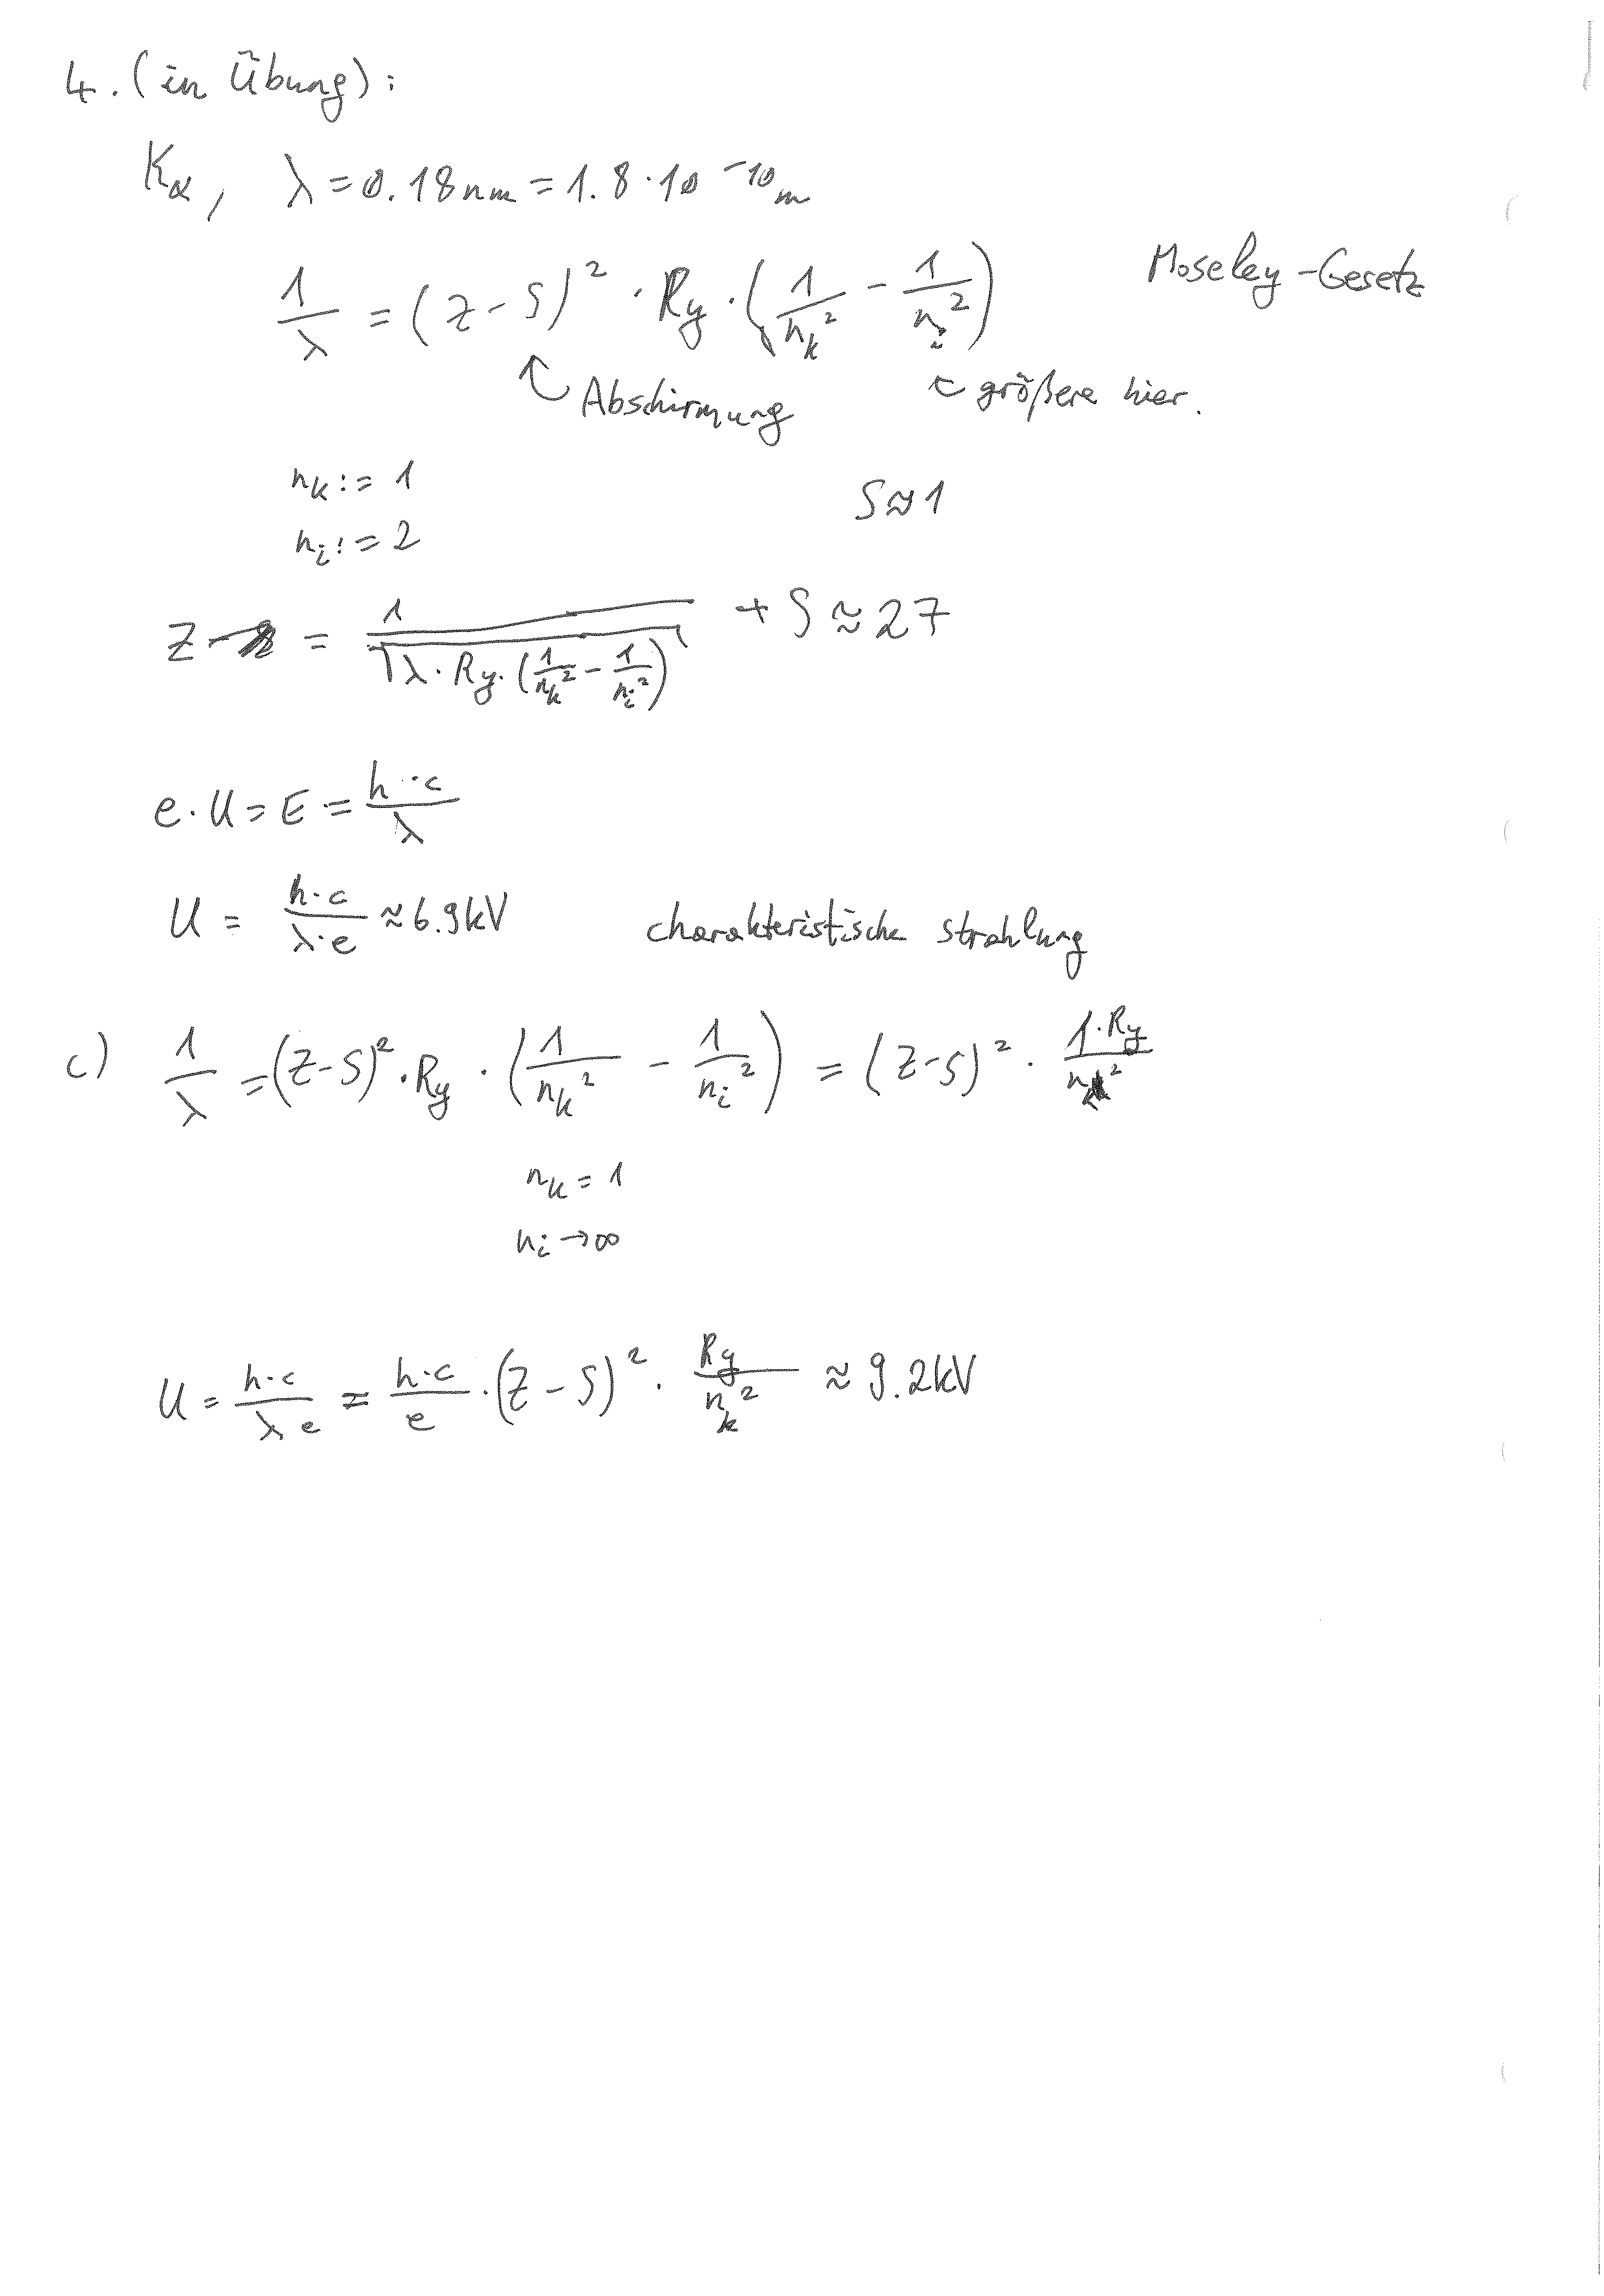 4. (in Übung):
Kα, λ = 0.18nm = 1.8·10⁻¹⁰m
1/λ = (Z-S)² · Ry · (1/n_k² - 1/n_i²) Moseley-Gesetz
↖ Abschirmung ↖ größere hier.
n_k := 1 S≈1
n_i := 2
Z = 1/√(λ·Ry·(1/n_k² - 1/n_i²)) + S ≈ 27
e·U = E = h·c/λ
U = h·c/(λ·e) ≈ 6.9kV charakteristische Strahlung
c) 1/λ = (Z-S)²·Ry · (1/n_k² - 1/n_i²) = (Z-S)² · 1·Ry/n_k²
n_k = 1
n_i → ∞
U = h·c/(λ e) = h·c/e · (Z-S)² · Ry/n_k² ≈ 9.2kV